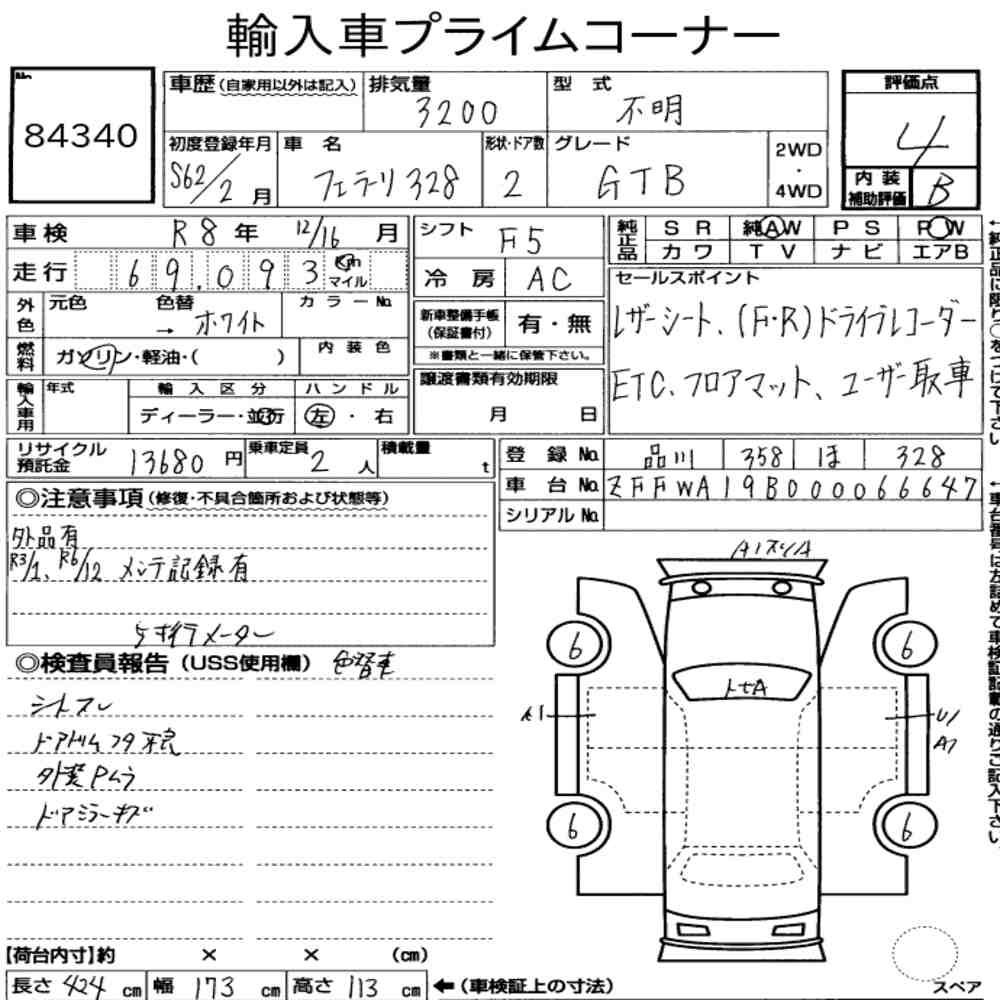 輸入車プライムコーナー
84340
車歴(自家用以外は記入) 排気量 3200 型式 不明 評価点 4
初度登録年月 S62/2月 車名 フェラーリ328 形状・ドア数 2 グレード GTB 2WD・4WD 内装補助評価 B
車検 R8年 12/16月 シフト F5 純正品 SR 純AW PS PW
カワ TV ナビ エアB
走行 69,093 Km マイル 冷房 AC セールスポイント
外色 元色 色替→ホワイト カラーNo. 新車整備手帳(保証書付) 有・無 レザーシート、(F・R)ドライブレコーダー
燃料 ガソリン・軽油・( ) 内装色 ※書類と一緒に保管下さい。
ETC、フロアマット、ユーザー取車
輸入車用 年式 輸入区分 ハンドル 譲渡書類有効期限
ディーラー・並行 左・右 月 日
リサイクル預託金 13680円 乗車定員 2人 積載量 t 登録No. 品川 358 ほ 328
車台No. ZFFWA19B000066647
シリアルNo.
◎注意事項(修復・不具合箇所および状態等)
外品有
R3/1、R6/12 メンテ記録有
5ケタメーター
◎検査員報告(USS使用欄) 色替車
シートスレ
ドアトリムフタ不良
外装Pムラ
ドアミラーキズ
A1
6 6
A1 U1
A1
6 6
【荷台内寸】約 × × (cm)
長さ 424 cm 幅 173 cm 高さ 113 cm ←(車検証上の寸法)
スペア
←純正品に限り○をつけて下さい
←車台番号は左詰めで車検証記載の通りご記入下さい。